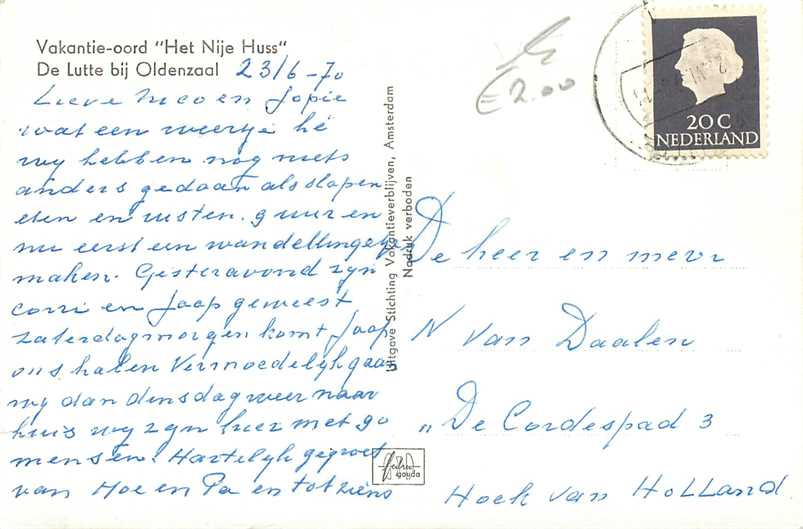 Vakantie-oord "Het Nije Huss"
De Lutte bij Oldenzaal 23/6-70
Lieve Nico en Jopie
wat een weertje hè
wy hebben nog niets
anders gedaan als slapen
eten en rusten. 9 uur en
nu eerst een wandellingetje
maken. Gisteravond zyn
Corri en Jaap geweest
zaterdagmorgen komt Jaap
ons halen Vermoedelijk gaan
wy dan dinsdag weer naar
huis wy zyn hier met 90
mensen. Hartelyk gegroet
van Moe en Pa en tot ziens
Uitgave Stichting Vakantieverblijven, Amsterdam
Nadruk verboden
€ 2.00
20 C
NEDERLAND
De heer en mevr
N van Daalen
„De Cordespad 3
Hoek van HOLLAND
gouda